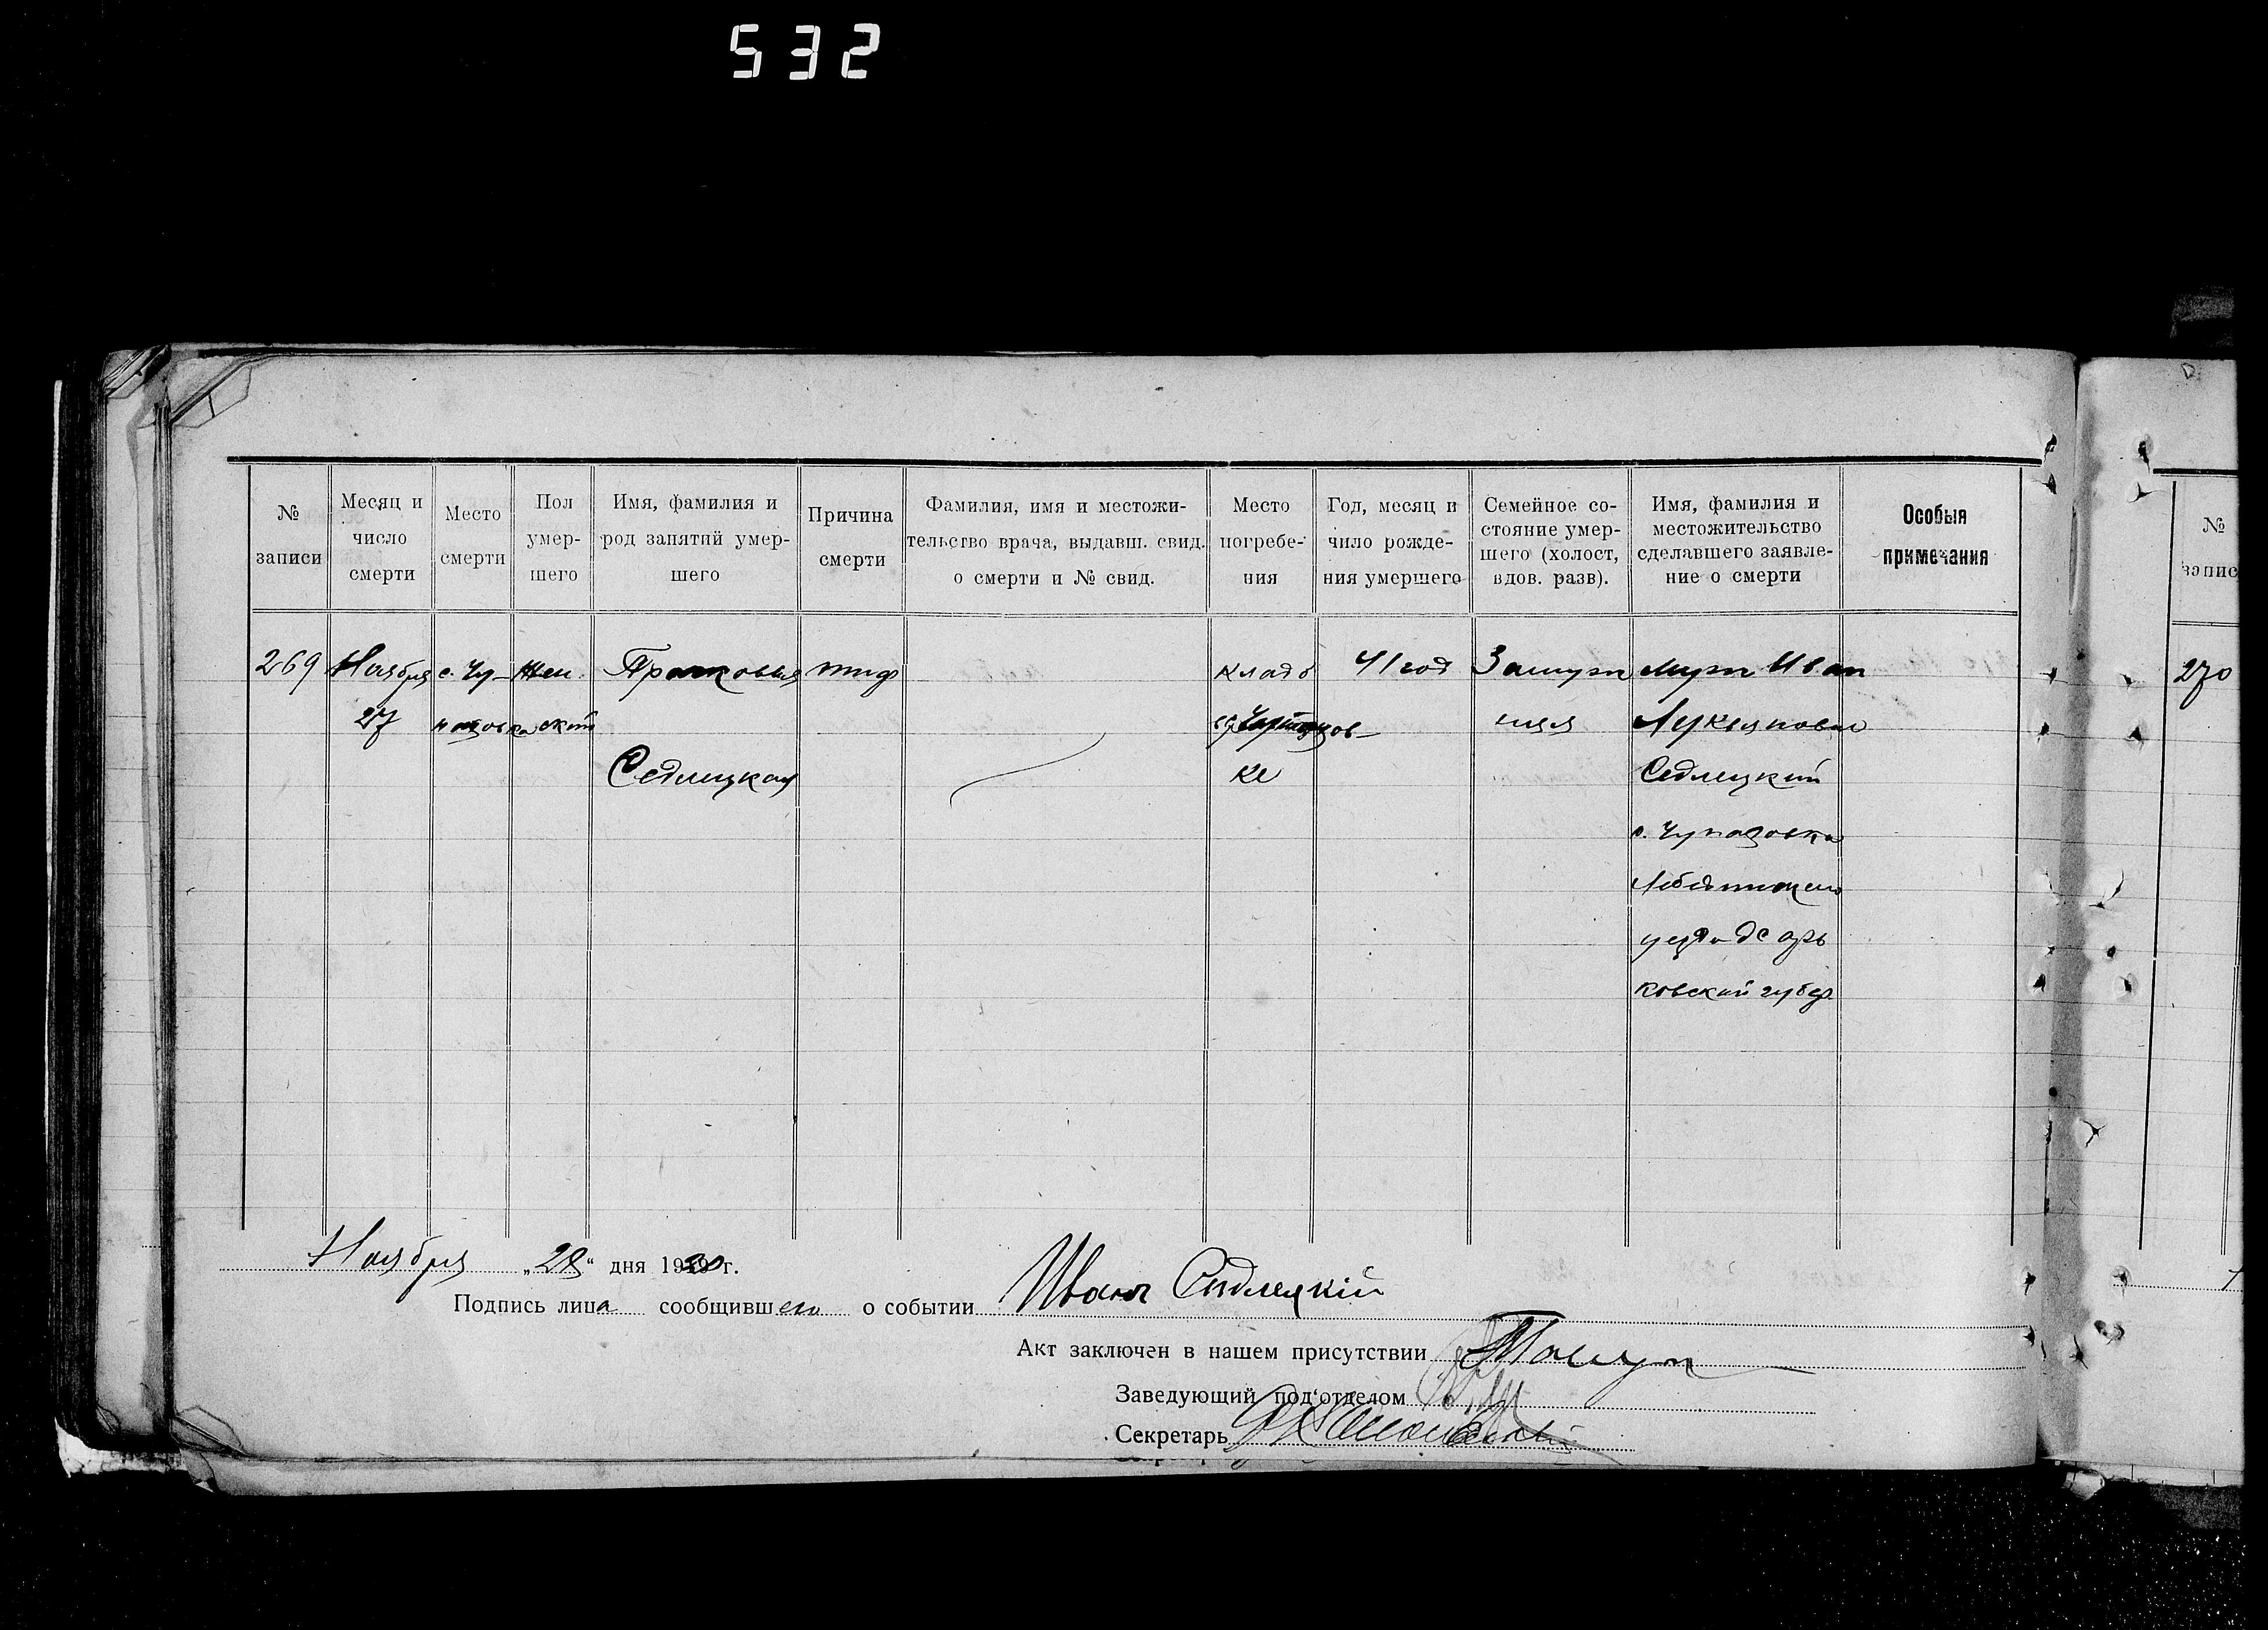 532
№ записи
Месяц и число смерти
Место смерти
Пол умер-шего
Имя, фамилия и род занятий умер-шего
Причина смерти
Фамилия, имя и местожи-тельство врача, выдавш. свид. о смерти и № свид.
Место погребе-ния
Год, месяц и чило рожде-ния умершего
Семейное со-стояние умер-шего (холост, вдов. разв).
Имя, фамилия и местожительство сделавшего заявле-ние о смерти
Особыя примечания
№ запис
269 Ноября с. Чу- Жен. Прасковья тиф кладб 41 год Замуж муж Иван 270
27 пазовка ский няя Лукьянович
Седлецкая ке Седлецкий
с. Чупазовка
Лебединского
уезда Харь
ковской губер.
Ноября „28“ дня 1920 г.
Подпись лица сообщившего о событии Иван Седлецкій
Акт заключен в нашем присутствии
Заведующий под'отделом
Секретарь